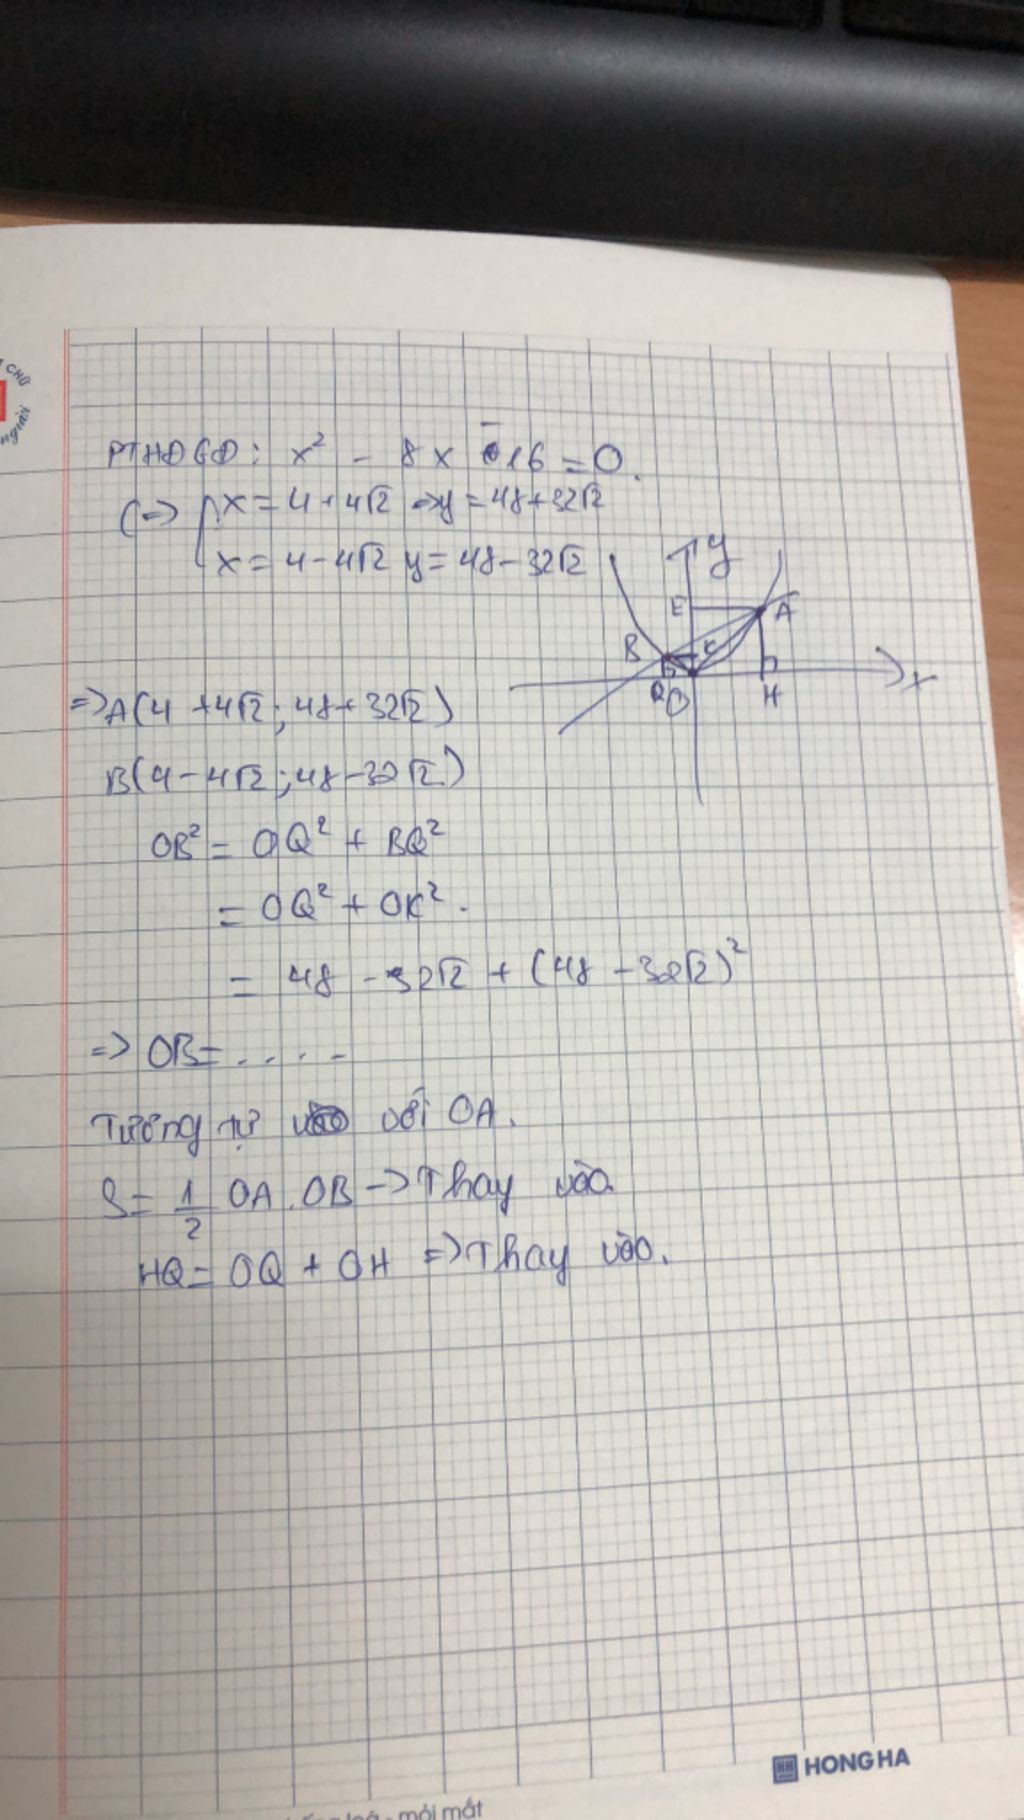 PTHĐGĐ: x² - 8x - 16 = 0.
(=> x = 4 + 4√2 => y = 48 + 32√2
x = 4 - 4√2 y = 48 - 32√2
y
E A
B K
x
Q O H
=> A(4 + 4√2; 48 + 32√2)
B(4 - 4√2; 48 - 32√2)
OB² = OQ² + BQ²
= OQ² + OK².
= 48 - 32√2 + (48 - 32√2)²
=> OB = . . . . -
Tương tự với OA.
S = 1/2 OA.OB -> Thay vào.
HQ = OQ + OH => Thay vào.
HONG HA
mới mắt